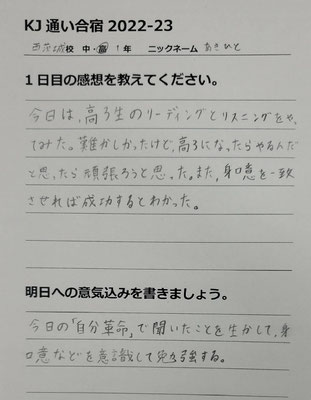 KJ 通い合宿 2022-23
西茨城校 中・高 1年 ニックネーム あきひと
1日目の感想を教えてください。
今日は,高3生のリーディングとリスニングをや,
てみた。難かしかったけど,高3になったらやるんだ
と思ったら頑張ろうと思った。また,身口意を一致
させれば成功するとわかった。
明日への意気込みを書きましょう。
今日の「自分革命」で聞いたことを生かして,身
口意などを意識して勉強する。